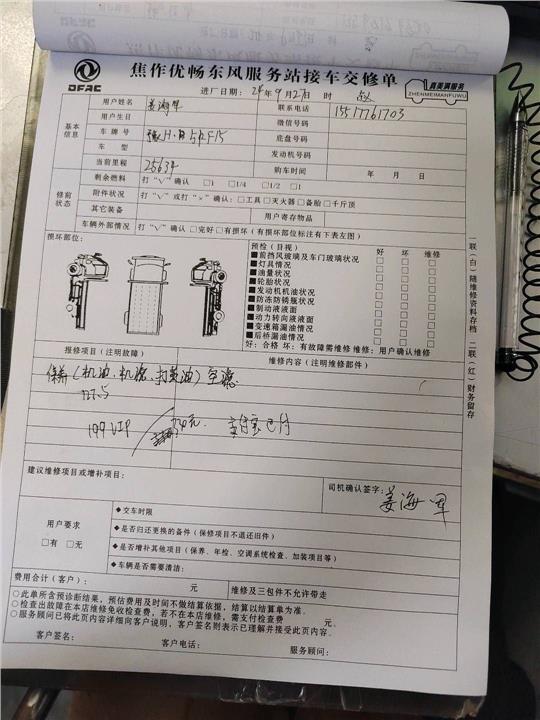 DFAC
焦作优畅东风服务站接车交修单
真美满服务
ZHENMEIMANFUWU
进厂日期: 24年9月27日 时
基本信息
用户姓名 姜海军 联系电话 15517761703
用户生日 微信号码
车牌号 豫H·B5RF15 底盘号码
车型 发动机号码
当前里程 25634 购车时间 年 月 日
修前状态
剩余燃料 打“√”确认 □1 □1/4 □1/2 □1
附件状况 打“√”或打“×”确认: □工具 □灭火器 □备胎 □千斤顶
其它装备 用户寄存物品
车辆外部情况 打“√”确认 □完好 □有损坏(有损坏部位标注有下表左图)
损坏部位:
预检(目视) 好 坏 维修
■前挡风玻璃及车门玻璃状况 □ □ □
■灯具情况 □ □ □
■油量状况 □ □ □
■轮胎状况 □ □ □
■发动机机油状况 □ □ □
■防冻防锈瓶状况 □ □ □
■制动液液面 □ □ □
■动力转向液液面 □ □ □
■变速箱漏油情况 □ □ □
■后桥漏油情况 □ □ □
好: 合格 坏: 有故障需维修 维修: 用户确认维修
报修项目(注明故障) 维修内容(注明维修部件)
保养(机油、机滤、打黄油)空滤
199 VIP 支付宝已付
建议维修项目或增补项目:
司机确认签字: 姜海军
用户要求
□有 □无
◆交车时限
◆是否归还更换的备件(保修项目不退还旧件)
◆是否增补其他项目(保养、年检、空调系统检查、加装项目等)
◆车辆是否需要清洁:
费用合计(客户): 元 维修及三包件不允许带走
○此单所含预诊断结果,预估费用及时间不做结算依据,结算以结算单为准.
○检查出故障在本店维修免收检查费,若不在本店维修,需支付检查费 元.
○服务顾问已将此页内容详细向客户说明,客户签名则表示已理解并接受此页内容.
客户签名: 客户电话: 服务顾问:
一联(白)随维修资料存档 二联(红)财务留存